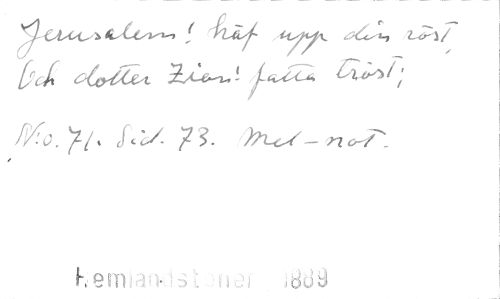 Jerusalem! häf upp din röst,
Och dotter Zion! fatta tröst;
No. 71. Sid. 73. Mel-not.
Hemlandstoner 1889